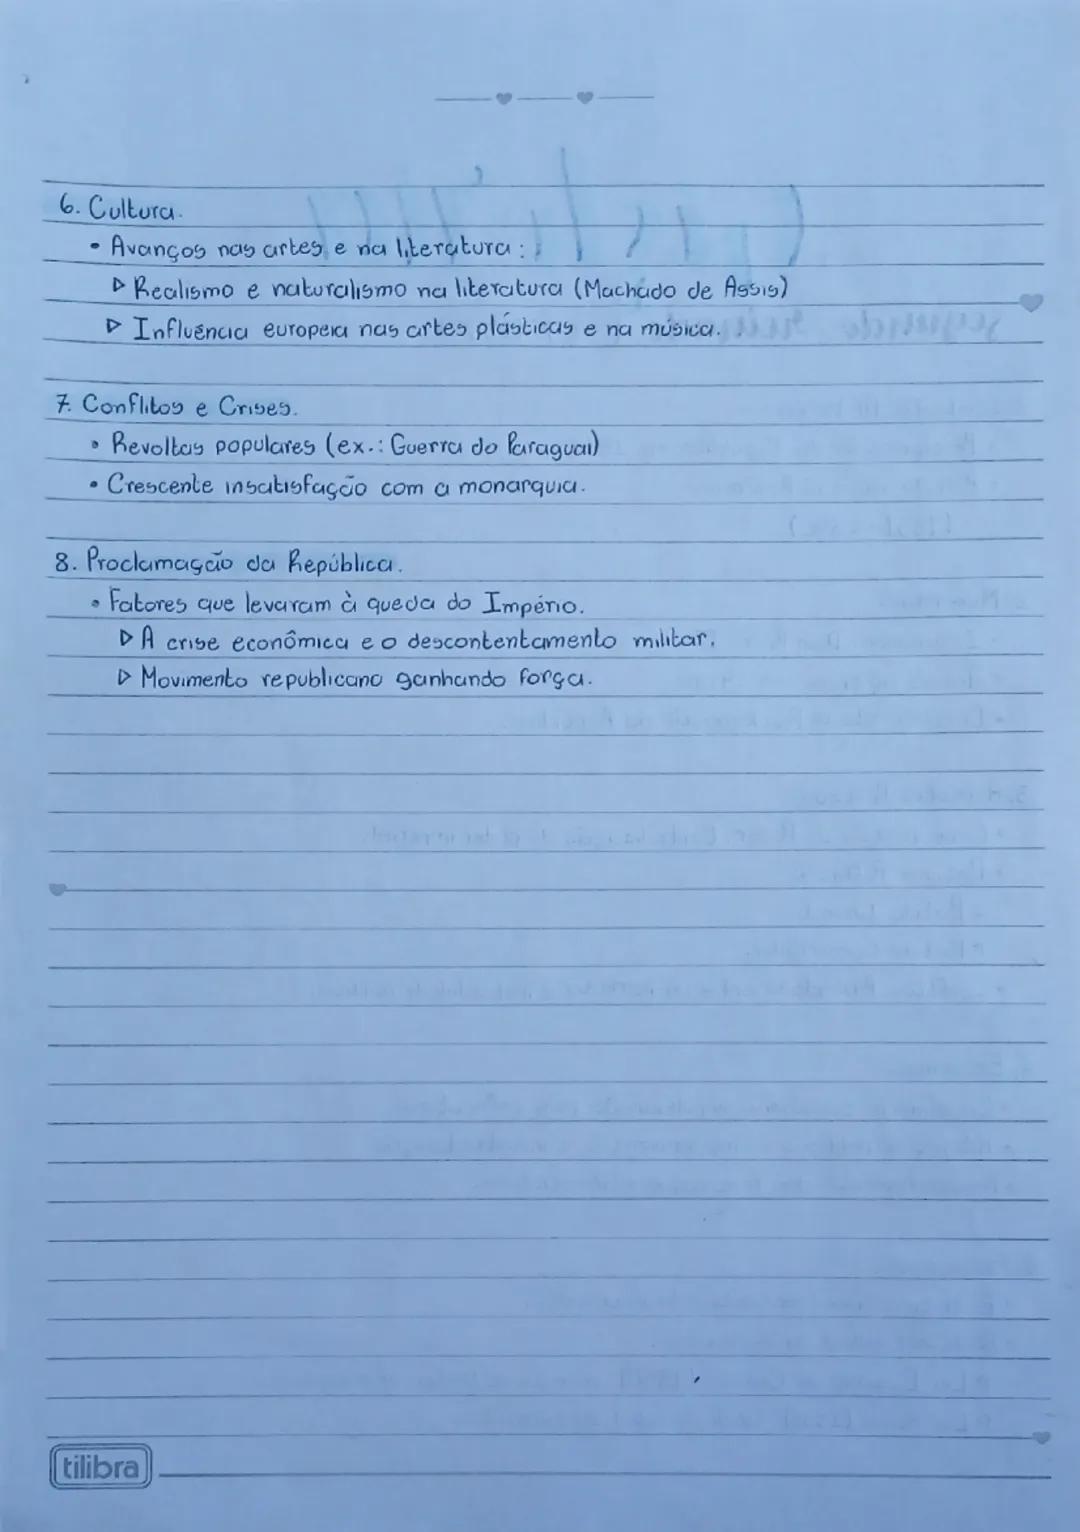 6. Cultura.
• Avanços nas artes e na literatura:
▷ Realismo e naturalismo na literatura (Machado de Assis)
▷ Influência europeia nas artes plásticas e na música.
7. Conflitos e Crises.
• Revoltas populares (ex.: Guerra do Paraguai)
• Crescente insatisfação com a monarquia.
8. Proclamação da República.
• Fatores que levaram à queda do Império.
▷ A crise econômica e o descontentamento militar.
▷ Movimento republicano ganhando força.
tilibra